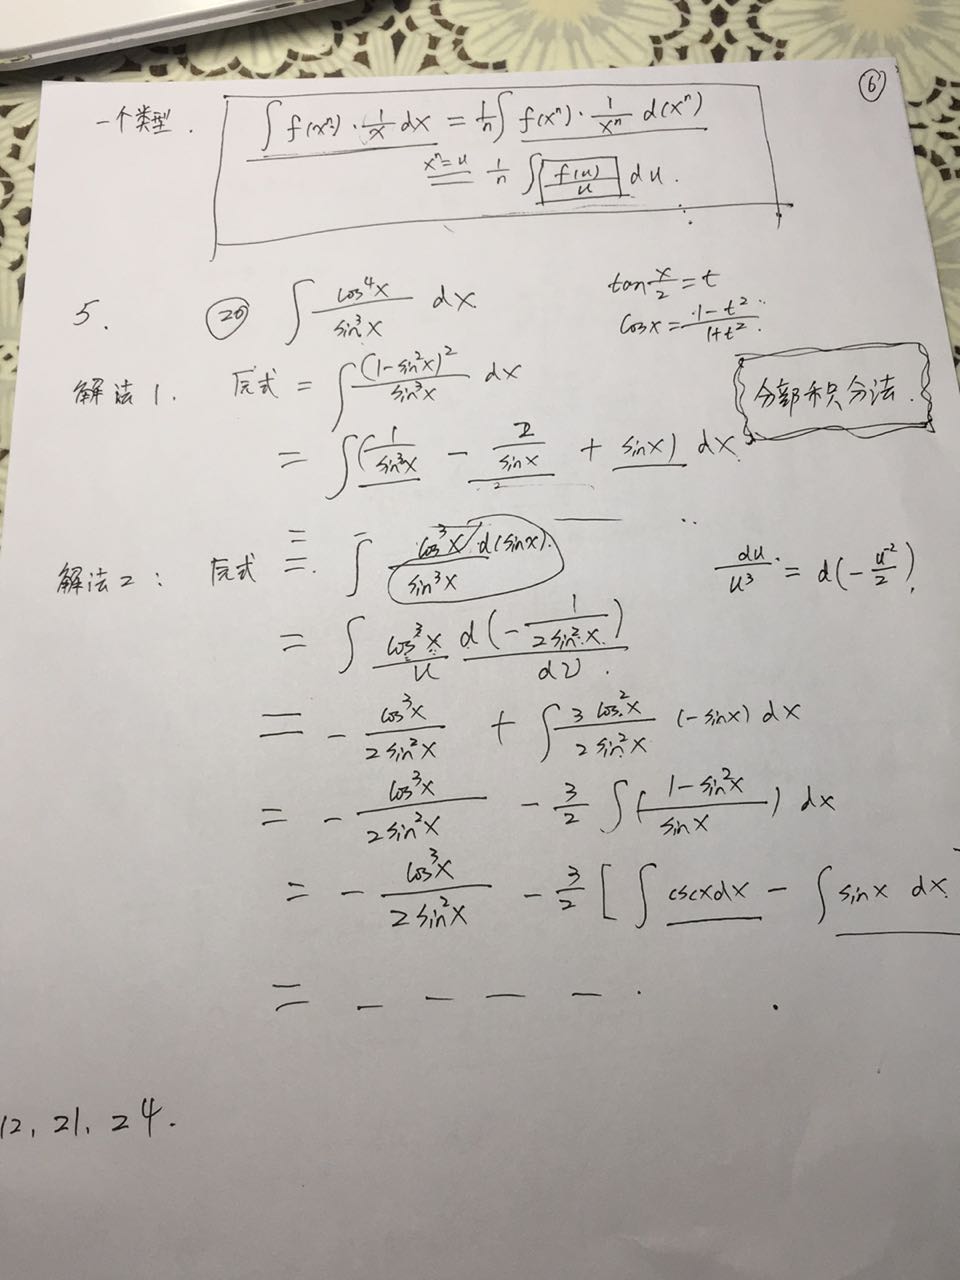 ⑥
一个类型. ∫ f(xⁿ)·1/x dx = 1/n ∫ f(xⁿ)·1/xⁿ d(xⁿ)
xⁿ=u = 1/n ∫ f(u)/u du.
5. ⑳ ∫ cos⁴x/sin³x dx
tan x/2 = t
cosx = 1-t²/1+t²
解法1. 原式 = ∫ (1-sin²x)²/sin³x dx
分部积分法.
= ∫ (1/sin³x - 2/sinx + sinx) dx
=
解法2: 原式 = ∫ cos³x d(sinx)/sin³x
du/u³ = d(-u⁻²/2),
= ∫ cos³x d(-1/2sin²x)
u dv.
= - cos³x/2sin²x + ∫ 3cos²x/2sin²x (-sinx) dx
= - cos³x/2sin²x - 3/2 ∫ (1-sin²x/sinx) dx
= - cos³x/2sin²x - 3/2 [∫ cscxdx - ∫ sinx dx
= - - - - .
12, 21, 24.